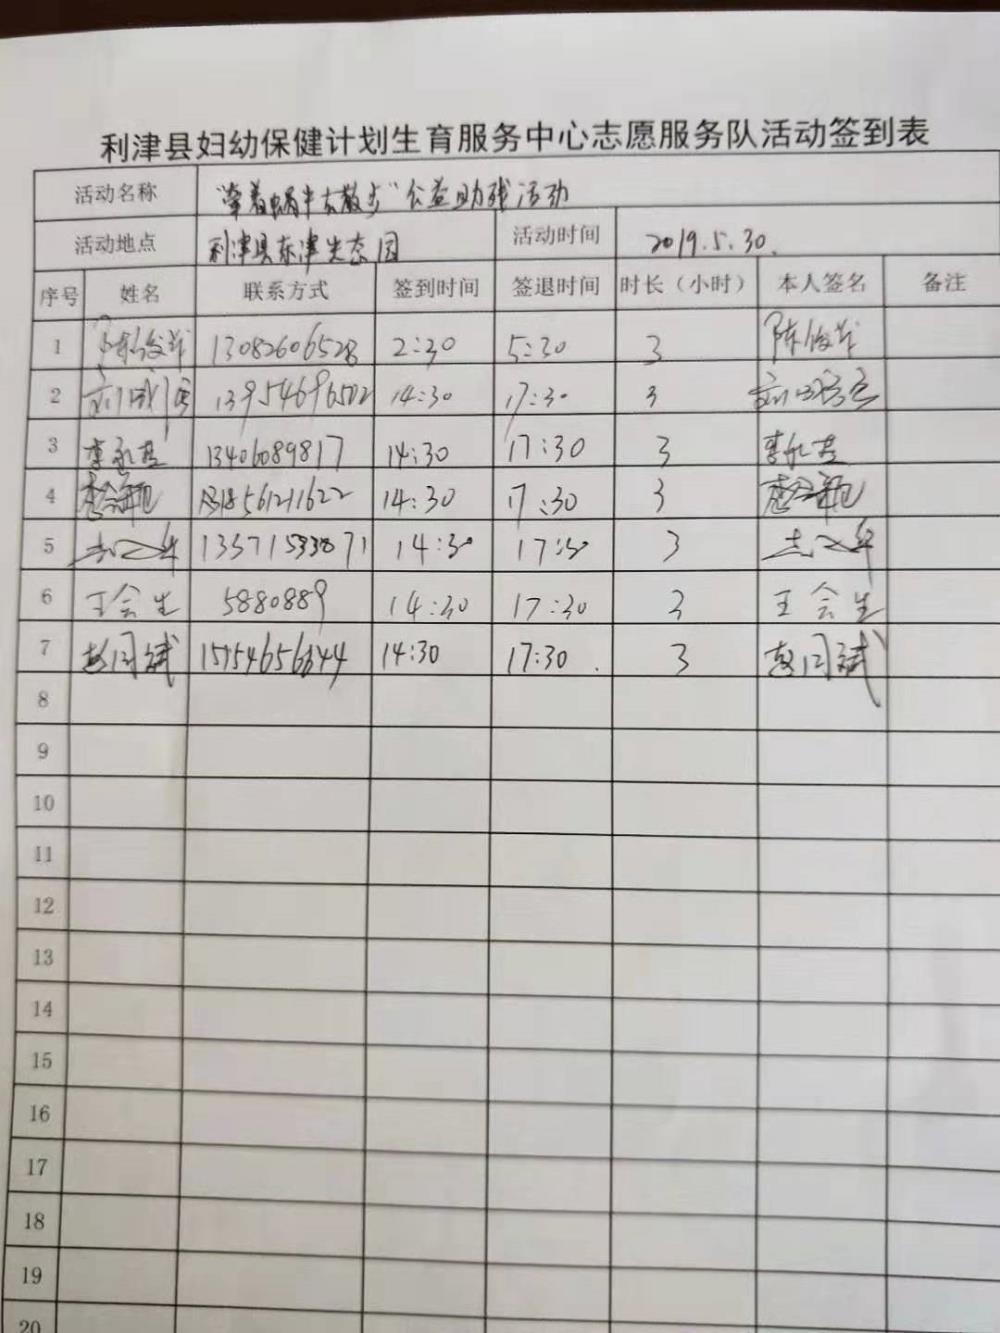 利津县妇幼保健计划生育服务中心志愿服务队活动签到表
活动名称 "牵着蜗牛去散步"公益助残活动
活动地点 利津县东津生态园 活动时间 2019.5.30.
序号 姓名 联系方式 签到时间 签退时间 时长（小时） 本人签名 备注
1 陈俊华 13082606528 2:30 5:30 3 陈俊华
2 13954696502 14:30 17:30 3
3 李永杰 13406089817 14:30 17:30 3 李永杰
4 14:30 17:30 3
5 14:30 17:30 3
6 王会生 5880889 14:30 17:30 3 王会生
7 赵同斌 14:30 17:30 3 赵同斌
8
9
10
11
12
13
14
15
16
17
18
19
20